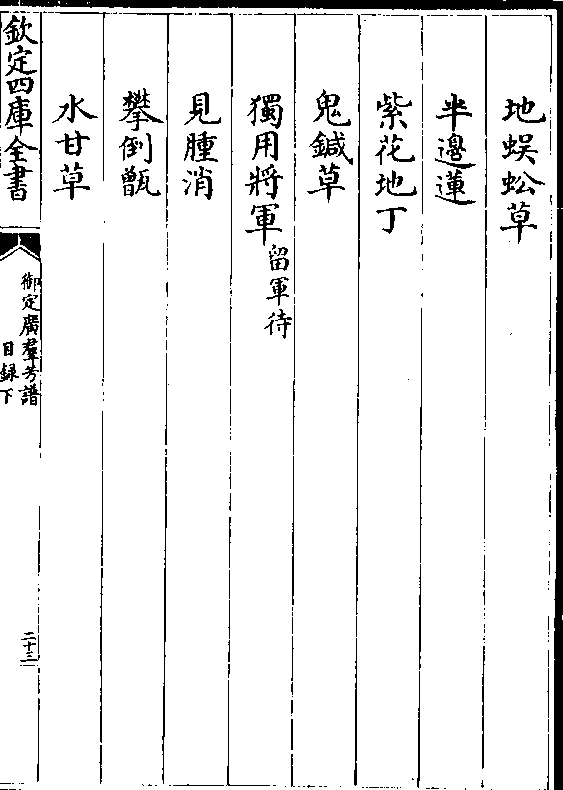 地蜈蚣草
半邊蓮
紫花地丁
鬼鍼草
獨用將軍留軍待
見腫消
攀倒甑
水甘草
欽定四庫全書
御定廣羣芳譜
目録下
二十三